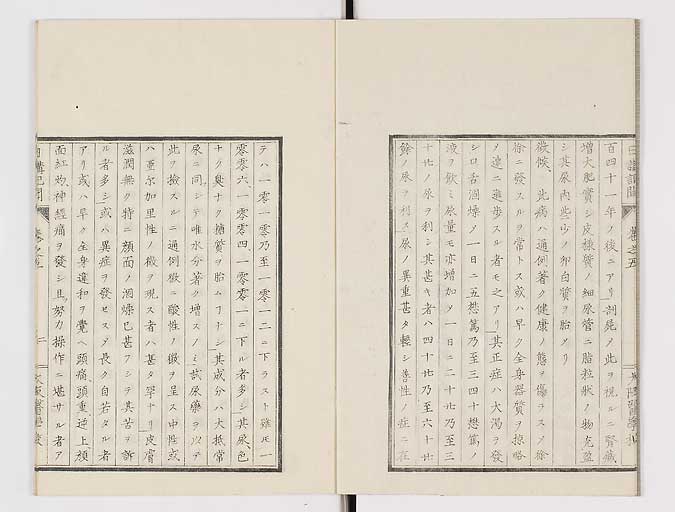 百四十一年ノ後ニアリ剖屍メ此ヲ視ルニ腎臓
増大肥實シ皮様質ノ細尿管ニ脂粒狀ノ物充盈
シ其尿内些少ノ卵白質ヲ胎メリ
徴候、此病ハ通例著ク健康ノ態ヲ傷ラスノ徐
徐ニ發スルヲ常トス或ハ早ク全身器質ヲ掠略
メ速ニ進歩スル者モ之アリ其正症ハ大渇ヲ發
シ口舌涸燥ノ一日ニ五懋篤乃至三四十懋篤ノ
液ヲ飲ミ尿量モ亦増加メ一日ニ二十卄乃至三
十卄ノ尿ヲ利シ其甚キ者ハ四十卄乃至六十卄
餘ノ尿ヲ利ス尿ノ異重甚タ輕シ善性ノ症ニ在
テハ一零一零乃至一零一二ニ下ラスト雖モ一
零零六、一零零四一零零一ニ下ル者多シ其尿、色
ナク臭ナク糖質ヲ胎ムナシ其成分ハ大抵常
尿ニ同シテ唯水分著ク増スノミ試尿藥ヲ以テ
此ヲ撿スルニ通例微ニ酸性ノ徴ヲ呈ス中性或
ハ亜尔加里性ノ徴ヲ現ス者ハ甚タ罕ナリ皮膚
滋潤無ク特ニ顔面ノ涸燥已甚フシテ其苦ヲ訴
ル者多シ或ハ異症ヲ發セスメ長ク自若タル者
アリ或ハ早ク全身違和ヲ覺ヘ頭痛、頭重、逆上、顔
面紅灼、神經痛ヲ發シ且努力操作ニ堪サル者ア
日講記聞
巻之五
二
大阪醫學校